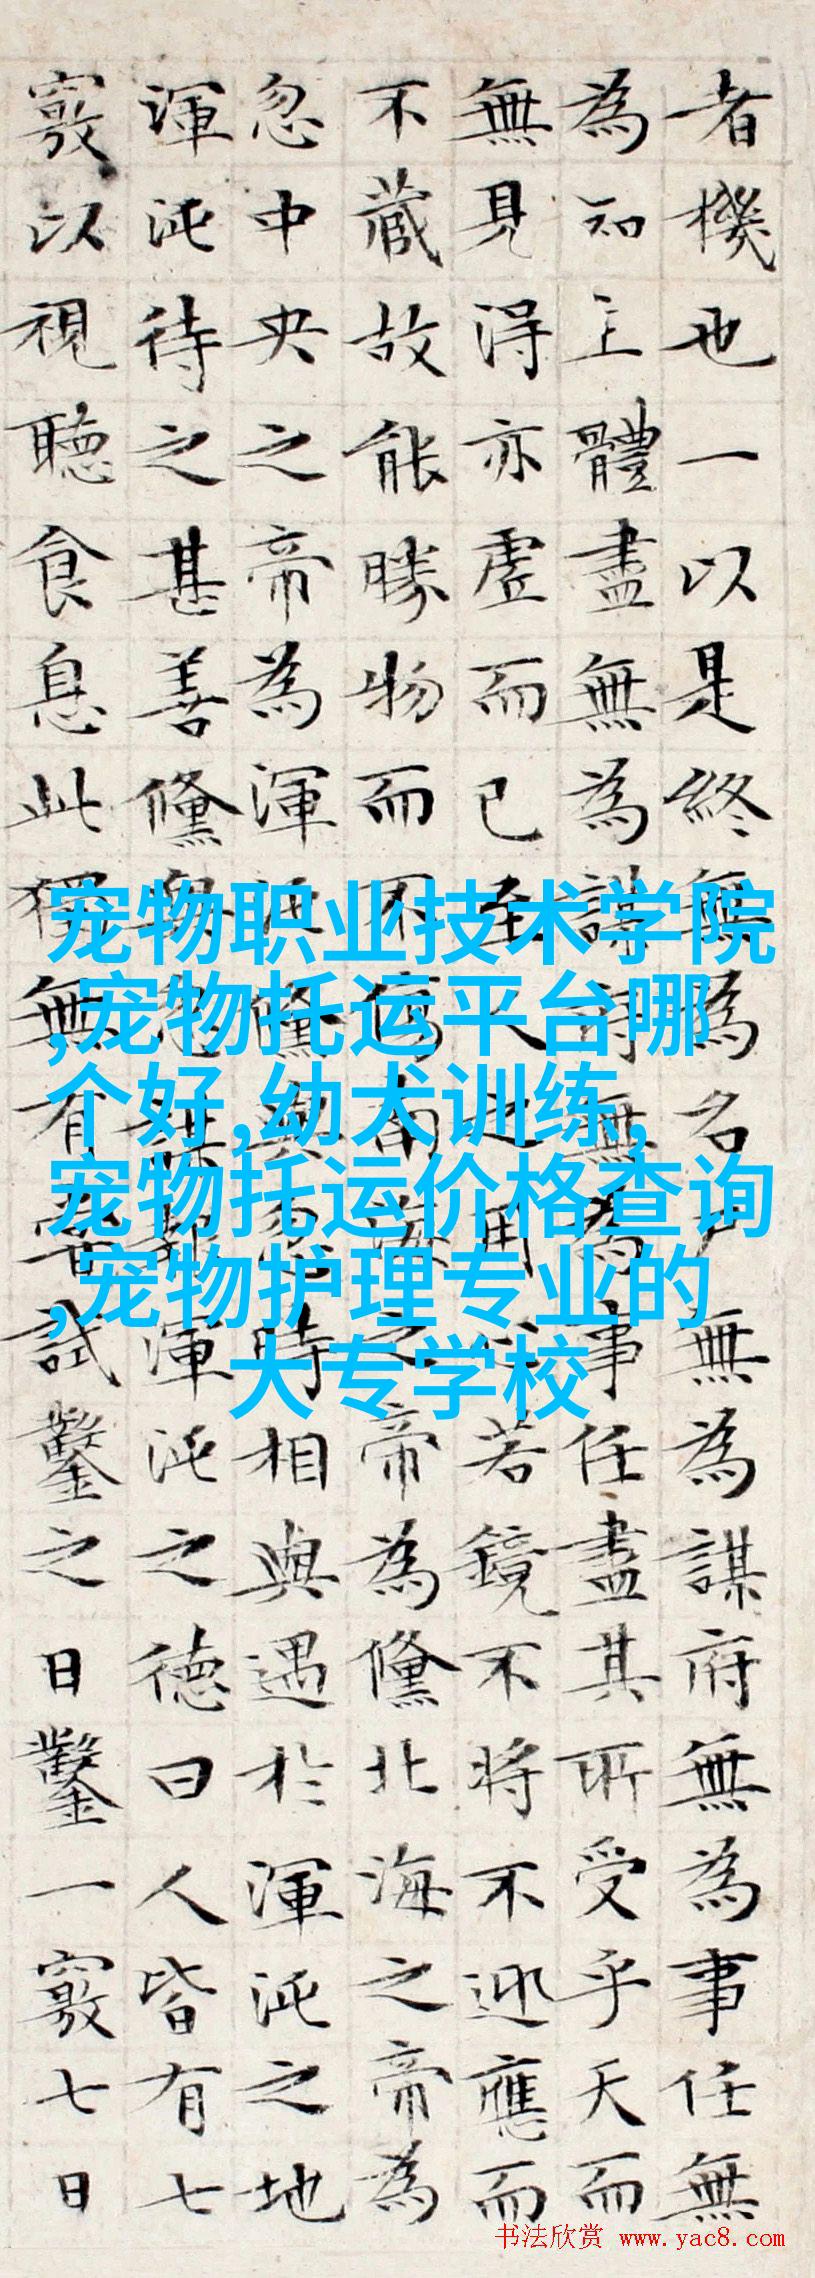 者機也一以是終無為名尸無為謀府無為事任無
為知主體盡無為謀府無為事任盡其所受乎天而
無見得亦虛而已至人之用心若鏡不將不迎應而
不藏故能勝物而不傷南海之帝為儵北海之帝為
忽中央之帝為渾沌儵與忽時相與遇於渾沌之地
渾沌待之甚善儵與忽謀報渾沌之德曰人皆有七
竅以視聽食息此獨無有嘗試鑿之日鑿一竅七日
宠物职业技术学院
,宠物托运平台哪
个好,幼犬训练,
宠物托运价格查询
,宠物护理专业的
大专学校
书法欣赏 www.yac8.com